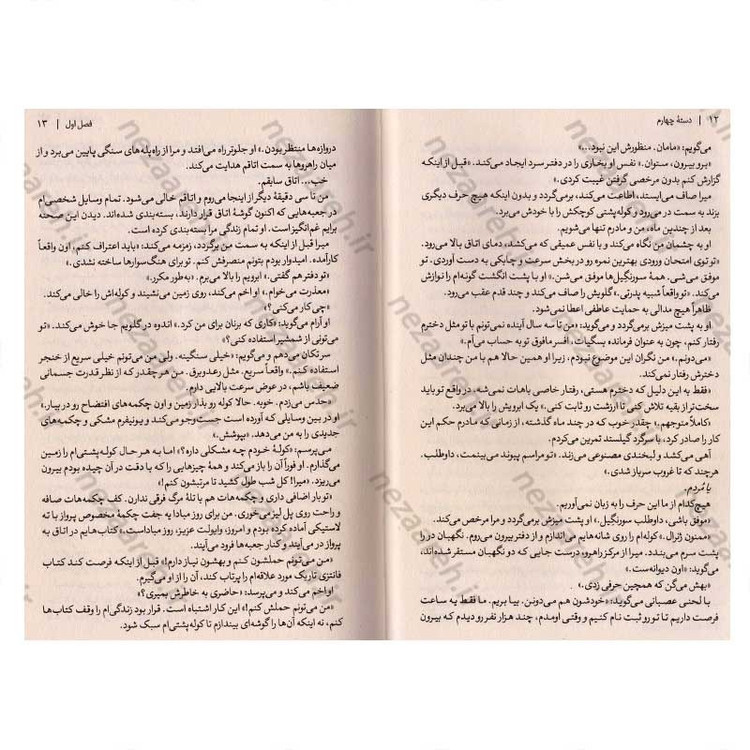 ۱۲ | دستهٔ چهارم
می‌گویم: «مامان. منظورش این نبود...»
«برو بیرون، ستوان.» نفس او بخاری را در دفتر سرد ایجاد می‌کند. «قبل از اینکه
گزارش کنم بدون مرخصی گرفتن غیبت کردی.»
میرا صاف می‌ایستد، اطاعت می‌کند، برمی‌گردد و بدون اینکه هیچ حرف دیگری
بزند به سمت در می‌رود و کوله‌پشتی کوچکش را با خودش می‌برد.
بعد از چندین ماه، من و مادرم تنها می‌شویم.
او به چشمان من نگاه می‌کند و با نفس عمیقی که می‌کشد، دمای اتاق بالا می‌رود.
«تو توی امتحان ورودی بهترین نمره رو در بخش سرعت و چابکی به دست آوردی. تو
موفق می‌شی. همهٔ سورنگیل‌ها موفق می‌شن.» او با پشت انگشت گونه‌ام را نوازش
می‌کند. «تو واقعاً شبیه پدرتی.» گلویش را صاف می‌کند و چند قدم عقب می‌رود.
ظاهراً هیچ مدالی به حمایت عاطفی اعطا نمی‌شود.
او به پشت میزش برمی‌گردد و می‌گوید: «من تا سه سال آینده نمی‌تونم با تو مثل دخترم
رفتار کنم، چون به عنوان فرمانده بسگیات، افسر مافوق تو به حساب می‌آم.»
«می‌دونم.» من نگران این موضوع نبودم، زیرا او همین حالا هم با من چندان مثل
دخترش رفتار نمی‌کند.
«فقط به این دلیل که دخترم هستی، رفتار خاصی باهات نمی‌شه. در واقع تو باید
سخت‌تر از بقیه تلاش کنی تا ارزشت رو ثابت کنی.» یک ابرویش را بالا می‌برد.
«کاملاً متوجهم.» چقدر خوب که در چند ماه گذشته، از زمانی که مادرم حکم این
کار را صادر کرد، با سرگرد گیلستد تمرین می‌کردم.
آهی می‌کشد و لبخندی مصنوعی می‌زند. «تو مراسم پیوند می‌بینمت، داوطلب.
هرچند که تا غروب سرباز شدی.»
یا مُردم.
هیچ‌کدام از ما این حرف را به زبان نمی‌آوریم.
«موفق باشی، داوطلب سورنگیل.» او پشت میزش برمی‌گردد و مرا مرخص می‌کند.
«ممنون ژنرال.» کوله‌ام را روی شانه‌هایم می‌اندازم و از دفتر بیرون می‌روم. نگهبان در را
پشت سرم می‌بندد. میرا از مرکز راهرو، درست جایی که دو نگهبان مستقر شده‌اند،
می‌گوید: «اون دیوانه‌ست.»
«بهش می‌گن که همچین حرفی زدی.»
با لحنی عصبانی می‌گوید: «خودشون هم می‌دونن. بیا بریم. ما فقط یه ساعت
فرصت داریم تا تو رو ثبت نام کنیم و وقتی اومدم، چند هزار نفر رو دیدم که بیرون
فصل اول | ۱۳
دروازه‌ها منتظر بودن.» او جلوتر راه می‌افتد و مرا از راه‌پله‌های سنگی پایین می‌برد و از
میان راهروها به سمت اتاقم هدایت می‌کند.
خب... اتاق سابقم.
من تا سی دقیقهٔ دیگر از اینجا می‌روم و اتاقم خالی می‌شود. تمام وسایل شخصی‌ام
در جعبه‌هایی که اکنون گوشهٔ اتاق قرار دارند، بسته‌بندی شده‌اند. دیدن این صحنه
برایم غم‌انگیز است. او تمام زندگی مرا بسته‌بندی کرده است.
میرا قبل از اینکه به سمت من برگردد، زمزمه می‌کند: «باید اعتراف کنم، اون واقعاً
کارآمده. امیدوار بودم بتونم منصرفش کنم. تو برای هنگ سوارها ساخته نشدی.»
«تو دفتر هم گفتی.» ابرویم را بالا می‌برم. «به‌طور مکرر.»
«معذرت می‌خوام.» او اخم می‌کند، روی زمین می‌نشیند و کوله‌اش را خالی می‌کند.
«چی کار می‌کنی؟»
او آرام می‌گوید: «کاری که برنان برای من کرد.» اندوه در گلویم جا خوش می‌کند. «تو
می‌تونی از شمشیر استفاده کنی؟»
سر تکان می‌دهم و می‌گویم: «خیلی سنگینه. ولی من می‌تونم خیلی سریع از خنجر
استفاده کنم.» واقعاً سریع. مثل رعدوبرق. من هر چقدر که از نظر قدرت جسمانی
ضعیف باشم، در عوض سرعت بالایی دارم.
«حدس می‌زدم. خوبه. حالا کوله رو بذار زمین و اون چکمه‌های افتضاح رو در بیار.»
او در بین وسایلی که آورده است جست‌وجو می‌کند و یونیفرم مشکی و چکمه‌های
جدیدی را به من می‌دهد. «بپوشش.»
می‌پرسم: «کولهٔ خودم چه مشکلی داره؟» اما به هر حال کوله‌پشتی‌ام را زمین
می‌گذارم. او فوراً آن را باز می‌کند و همهٔ چیزهایی را که با دقت در آن چیده بودم بیرون
می‌ریزد. «میرا! کل شب طول کشید تا مرتبشون کنم!»
«تو بار اضافی داری و چکمه‌ها هم با تلهٔ مرگ فرقی ندارن. کف چکمه‌هات صافه
و راحت روی پل لیز می‌خوری. من برای روز مبادا یه جفت چکمهٔ مخصوص پرواز با ته
لاستیکی آماده کرده بودم و امروز، وایولت عزیز، روز مباداست.» کتاب‌هایم در اتاق به
پرواز در می‌آیند و کنار جعبه‌ها فرود می‌آیند.
«من می‌تونم حملشون کنم و بهشون نیاز دارم!» قبل از اینکه فرصت کند کتاب
فانتزی تاریک مورد علاقه‌ام را پرتاب کند، آن را از او می‌گیرم.
او اخم می‌کند و می‌پرسد: «حاضری به خاطرش بمیری؟»
«من می‌تونم حملش کنم!» این کار اشتباه است. قرار بود زندگی‌ام را وقف کتاب‌ها
کنم، نه اینکه آن‌ها را گوشه‌ای بیندازم تا کوله‌پشتی‌ام سبک شود.